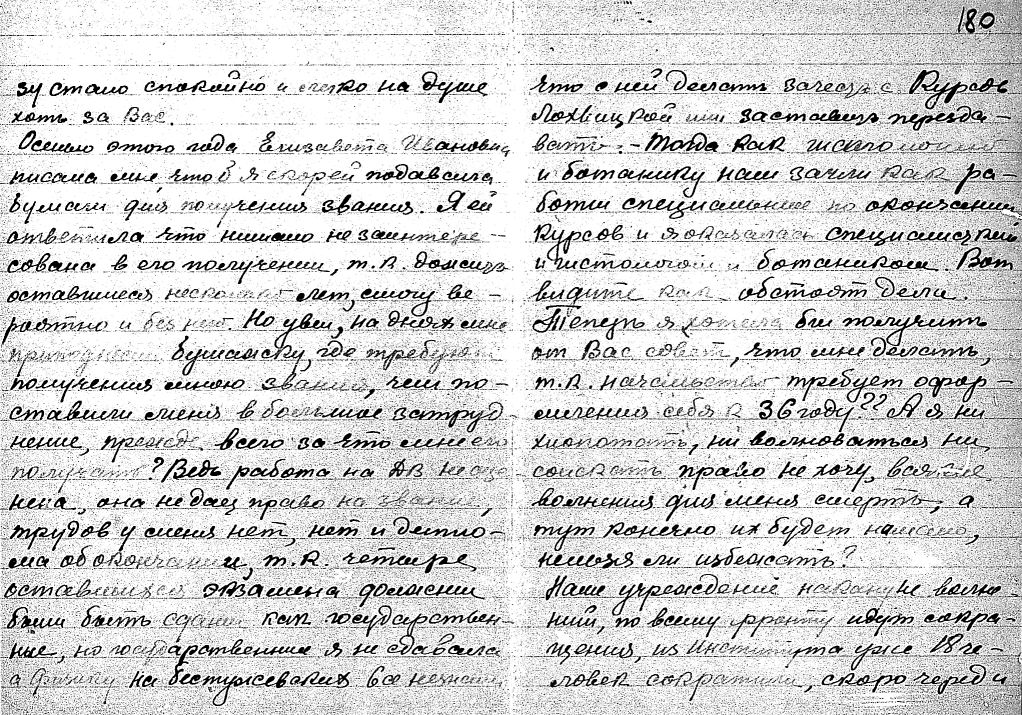 180
зу стало спокойно и легко на душе
хоть за Вас.
Осенью этого года Елизавета Ивановна
писала мне, чтоб я скорей подавала
бумаги для получения звания. Я ей
ответила что нимало не заинтере-
сована в его получении, т.к. доживу
оставшиеся несколько лет, смогу ве-
роятно и без него. Но увы, на днях мне
преподнесли бумажку, где требуют
получения мною звания, чем по-
ставили меня в большое затруд-
нение, прежде всего за что мне его
получать? Ведь работа на ДВ не
нена, она не дает право на звание,
трудов у меня нет, нет и дипло-
ма об окончании, т.к. четыре
оставшихся экзамена должны
были быть сданы как государствен-
ные, но государственные я не сдавала
а физику на бестужевских все
что с ней делать зачесть с Курсов
Лохвицкой или заставить пересда-
вать. - Тогда как гистологию
и ботанику нам зачли как ра-
боты специальные по окончании
Курсов и я оказалась специалисткой
и гистологом и ботаником. Вот
видите как обстоят дела.
Теперь я хотела бы получить
от Вас совет, что мне делать,
т.к. начальство требует офор-
мления себя к 36 году?? А я ни
хлопотать, ни волноваться ни
соискать право не хочу, всякие
волнения для меня смерть, а
тут конечно их будет немало,
нельзя ли избежать?
Наше учреждение накануне волне-
ний, по всему фронту идут сокра-
щения, из Института уже 18 че-
ловек сократили, скоро черед и